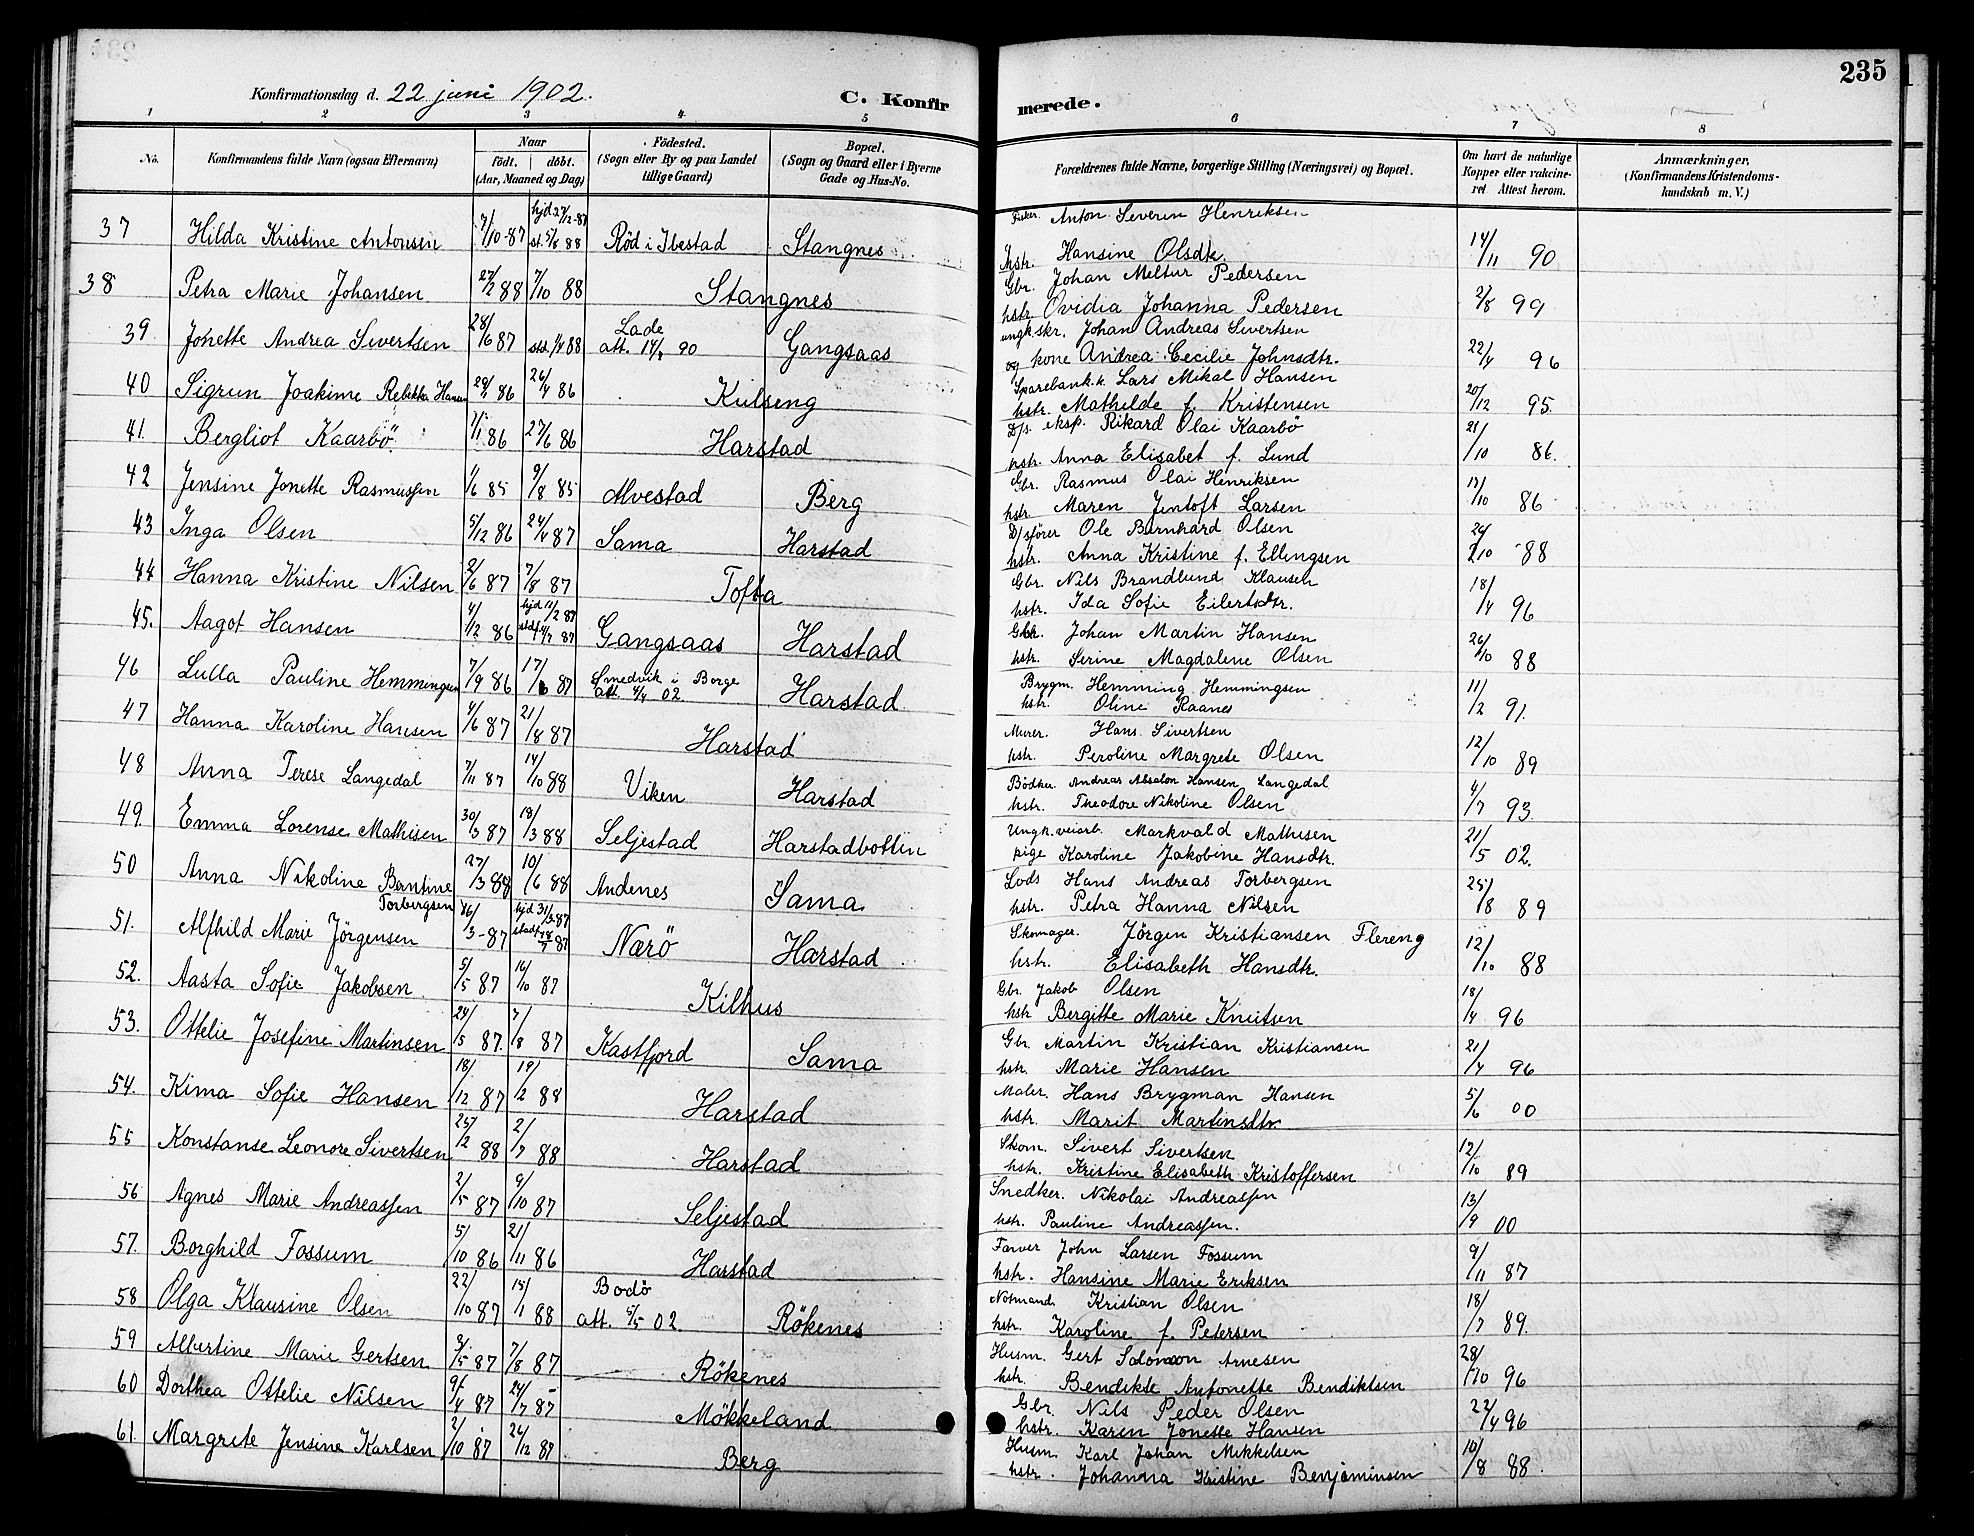 235
Konfirmationsdag d. 22 juni 1902.
C. Konfirmerede.
1 2 3 4 5 6 7 8
No.
Konfirmandens fulde Navn (ogsaa Efternavn)
Naar
født. døbt.
(Aar, Maaned og Dag)
Fødested.
(Sogn eller By og paa Landet
tillige Gaard)
Bopæl.
(Sogn og Gaard eller i Byerne
Gade og Hus-No.
Forældrenes fulde Navne, borgerlige Stilling (Næringsvei) og Bopæl.
Om havt de naturlige
Kopper eller vakcine-
ret Attest herom.
Anmærkninger.
(Konfirmandens Kristendoms-
kundskab m. V.)
37 Hilda Kristine Antonsen 7/10-87 hjd 27/12-87 st. 5/8 88 Röd i Ibestad Stangnes Fisker. Anton Severin Henriksen
hstr. Hansine Olsdtr. 14/11 90
38 Petra Marie Johansen 27/2 88 7/10 88 Stangnes Gbr. Johan Meltur Pedersen
hstr. Ovidia Johanna Pedersen 2/8 99
39. Jonette Andrea Sivertsen 28/6 87 Lade att. 90 Gangsaas ungk. skr. Johan Andreas Sivertsen
og kone Andrea Cecilie Johnsdtr. 22/4 96
40 Sigrun Joakime Rebekka Hansen 29/1 86 26/4 86 Kulseng Sparebank.k. Lars Mikal Hansen
hstr. Mathilde f. Kristensen 20/12 95.
41. Bergliot Kaarbö. 1/1 86 27/6 86 Harstad D/s. eksp. Rikard Olai Kaarbö
hstr. Anna Elisabet f. Lund 21/10 86.
42 Jensine Jonette Rasmussen 1/6 85 9/8 85 Alvestad Berg Gbr. Rasmus Olai Henriksen
hstr. Maren Jentoft Larsen 17/10 86
43 Inga Olsen 5/12 86 24/4 87 Sama Harstad D/sförer Ole Bernhard Olsen
hstr. Anna Kristine f. Ellingsen 24/10 88
44 Hanna Kristine Nilsen 2/6 87 7/8 87 Tofta Gbr. Nils Brandlund Klausen
hstr. Ida Sofie Eilertsdtr. 18/4 96
45. Aagot Hansen 4/12 86 hjd 11/2 87 87 Gangsaas Harstad Gbr. Johan Martin Hansen
hstr. Serine Magdalene Olsen 26/10 88
46 Lulla Pauline Hemmingsen 7/9 86 17/6 87 Smedvik i Borge att. 4/4 02 Harstad. Brygm. Hemming Hemmingsen
hstr. Oline Raanes 11/2 91.
47 Hanna Karoline Hansen 4/6 87 21/8 87 Harstad Murer. Hans Sivertsen
hstr. Peroline Margrete Olsen 12/10 89
48 Anna Terese Langedal 7/11 87 14/10 88 Viken Harstad Bödker. Andreas Absalon Hansen Langedal
hstr. Theodore Nikoline Olsen 4/7 93
49. Emma Lorense Mathisen 30/3 87 18/3 88 Seljestad Harstadbotten Ungk. veiarb. Markvald Mathisen
pige Karoline Jakobine Hansdtr. 21/5 02.
50 Anna Nikoline Berntine Torbergsen 27/3 88 10/6 88 Andenes Sama Lods Hans Andreas Torbergsen
hstr. Petra Hanna Nilsen 25/8 89
51. Alfhild Marie Jörgensen 16/3-87 hjd 31/3-87 87 Nærö Harstad Skomager. Jörgen Kristiansen Flereng
hstr. Elisabeth Hansdtr. 12/10 88
52. Aasta Sofie Jakobsen 5/5 87 16/10 87 Kilhus Gbr. Jakob Olsen
hstr Bergitte Marie Knutsen 18/4 96
53. Ottelie Josefine Martinsen 24/5 87. 7/8 87 Kastfjord Sama Gbr. Martin Kristian Kristiansen
hstr. Marie Hansen 21/4 96
54. Kima Sofie Hansen 18/12 87 19/2 88 Harstad Maler. Hans Brygman Hansen
hstr. Marit Martinsdtr 5/6 00
55 Konstanse Leonore Sivertsen 25/2 88 2/7 88 Harstad Skom. Sivert Sivertsen
hstr. Kristine Elisabeth Kristoffersen 12/10 89
56 Agnes Marie Andreassen 2/5 87 9/10 87 Seljestad Snedker. Nikolai Andreassen
hstr. Pauline Andreassen. 13/9 00
57. Borghild Fossum 5/10 86 21/11 86 Harstad Farver John Larsen Fossum
hstr. Hansine Marie Eriksen 9/11 87
58 Olga Klausine Olsen 22/10 87 15/1 88 Bodö att. 5/5 02. Rökenes Notmand. Kristian Olsen
hstr. Karoline f. Petersen 18/7 89.
59 Albertine Marie Gertsen 3/5 87 7/8 87 Rökenes Husm. Gert Salomon Arnesen
hstr. Bendikte Antonette Bendiktsen 28/10 96
60 Dorthea Ottelie Nilsen 9/4 87 24/7 87 Mökkeland Gbr. Nils Peder Olsen
hstr. Karen Jonette Hansen 22/4 96
61 Margrete Jensine Karlsen 2/10 87 26/12 87. Berg Husm. Karl Johan Mikkelsen
hstr. Johanna Kristine Benjaminsen 10/8 88.